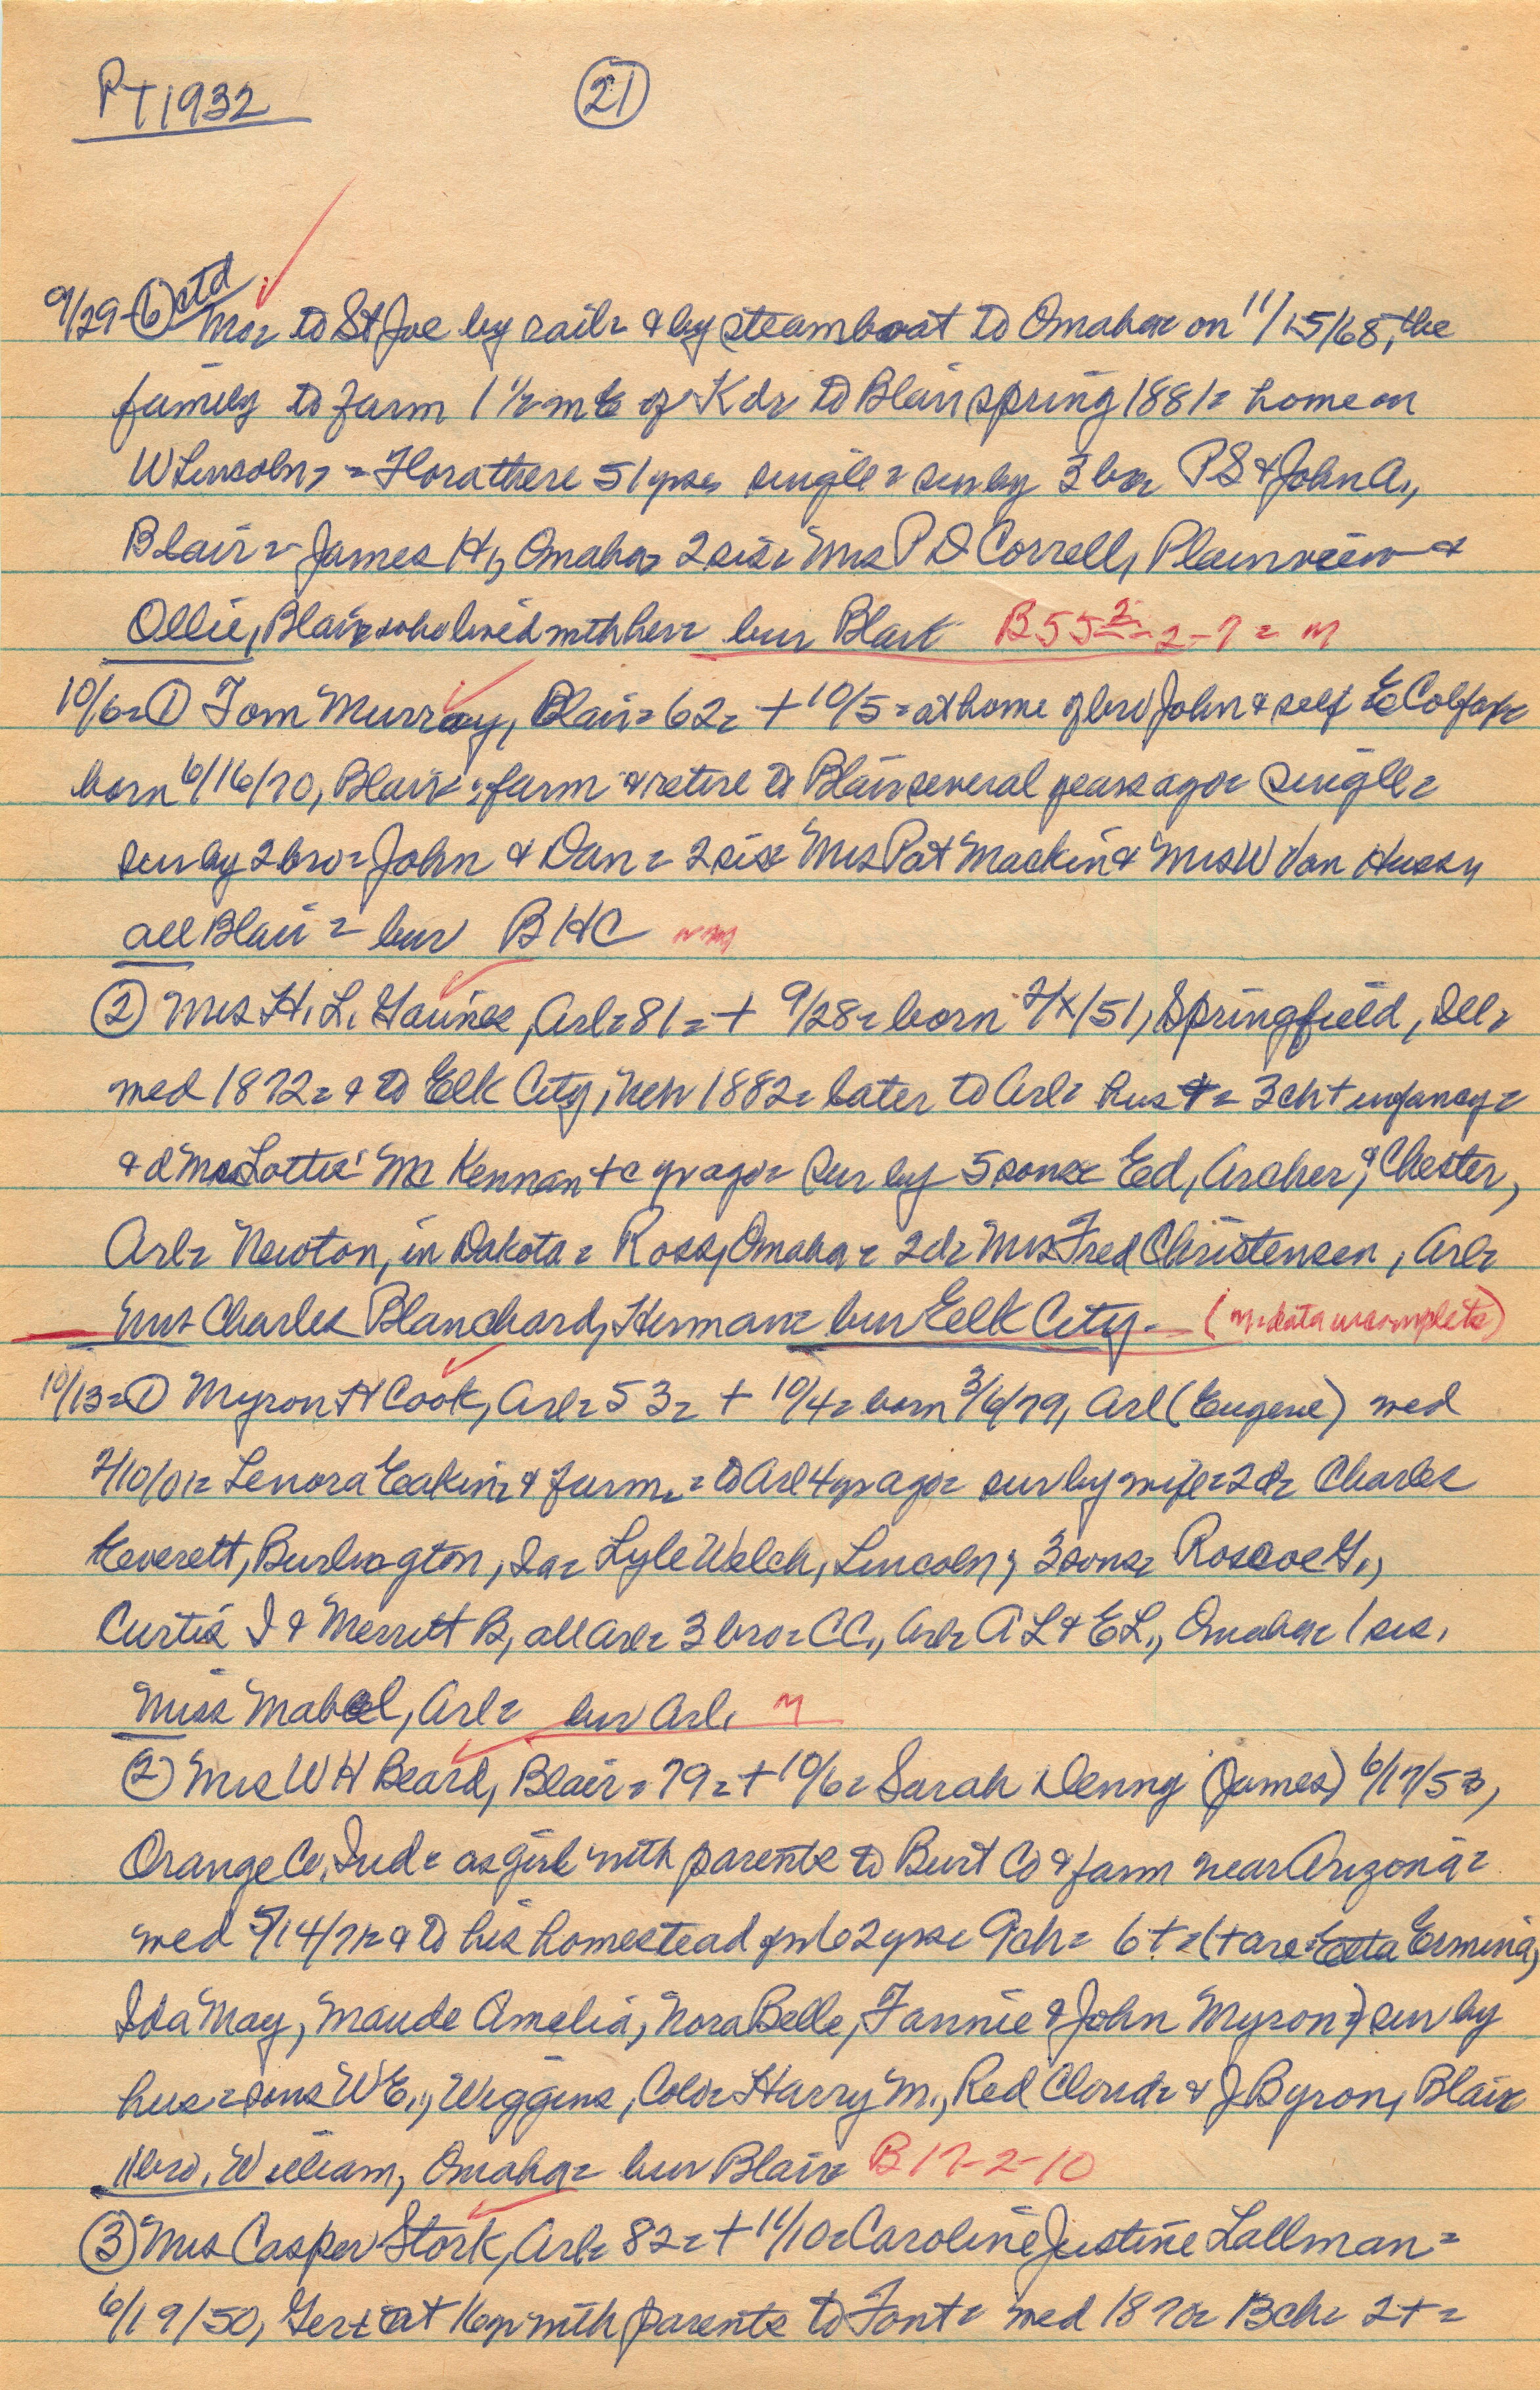 PT 1932
21
9/29-6 ctd Mo= to St Joe by rail= & by steamboat to Omaha= on 11/15/68, the
family to farm 1 1/2 m E of K d= to Blair spring 1881= home on
W Lincoln, = Flora there 51 yrs, single= sur by 3 bro= P S & John A.,
Blair= James H, Omaha= 2 sis= Mrs P D Correll, Plainview &
Ollie, Blair who lived with her= bur Blair B55 2-7= m
10/6=1 Tom Murray, Blair= 62= + 10/5= at home of bro John & self E Colfax
born 6/16/70, Blair= farm & retire to Blair several years ago= single=
sur by 2 bro= John & Dan= 2 sis= Mrs Pat Mackin & Mrs W Van Hussy
all Blair= bur BHC
2 Mrs H. L. Gaines, Arl= 81= + 9/28= born 2/x/51, Springfield, Ill=
med 1872= & to Elk City, Neb 1882= later to Arl= hus += 3 ch + infancy=
& d Mrs Lottie Mc Kennan + c yr ago= sur by 5 sons= Ed, Archer, & Chester,
Arl= Newton, in Dakota= Ross, Omaha= 2 d= Mrs Fred Christensen, Arl=
Mrs Charles Blanchard, Herman= bur Elk City- (m=data incomplete)
10/13=1 Myron H Cook, Arl= 53= + 10/4= born 3/6/79, Arl (Eugene) med
2/10/01= Lenora Eakin= & farm,= to Arl 4 yr ago= sur by wife= 2 d= Charles
Everett, Burlington, Ia= Lyle Welch, Lincoln; 3 sons= Roscoe G.,
Curtis I & Merritt B, all Arl= 3 bro= C C., Arl= A L & E L., Omaha= 1 sis,
Miss Mabel, Arl= bur Arl, m
2 Mrs W H Beard, Blair= 79= + 10/6= Sarah Denny (James) 6/17/53,
Orange Co, Ind= as girl with parents to Burt Co & farm near Arizona=
med 5/14/71= & to his homestead 62 yrs= 9 ch= 6 += (+ are= Etta Ermina,
Ida May, Maude Amelia, Nora Belle, Fannie & John Myron=) sur by
hus= sons W E., Wiggins, Colo= Harry M., Red Cloud= & J Byron, Blair
1 bro, William, Omaha= bur Blair= B17-2-10
3 Mrs Casper Stork, Arl= 82= + 11/10= Caroline Justine Lallman=
6/19/50, Ger= at 16 yr with parents to Font= med 1870= 13 ch= 2 +=